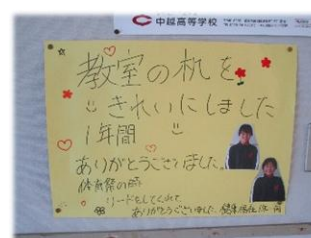 中越高等学校
教室の机を
きれいにしました
1年間
ありがとうございました。
体育祭の時
リードをしてくれて
ありがとうございました。